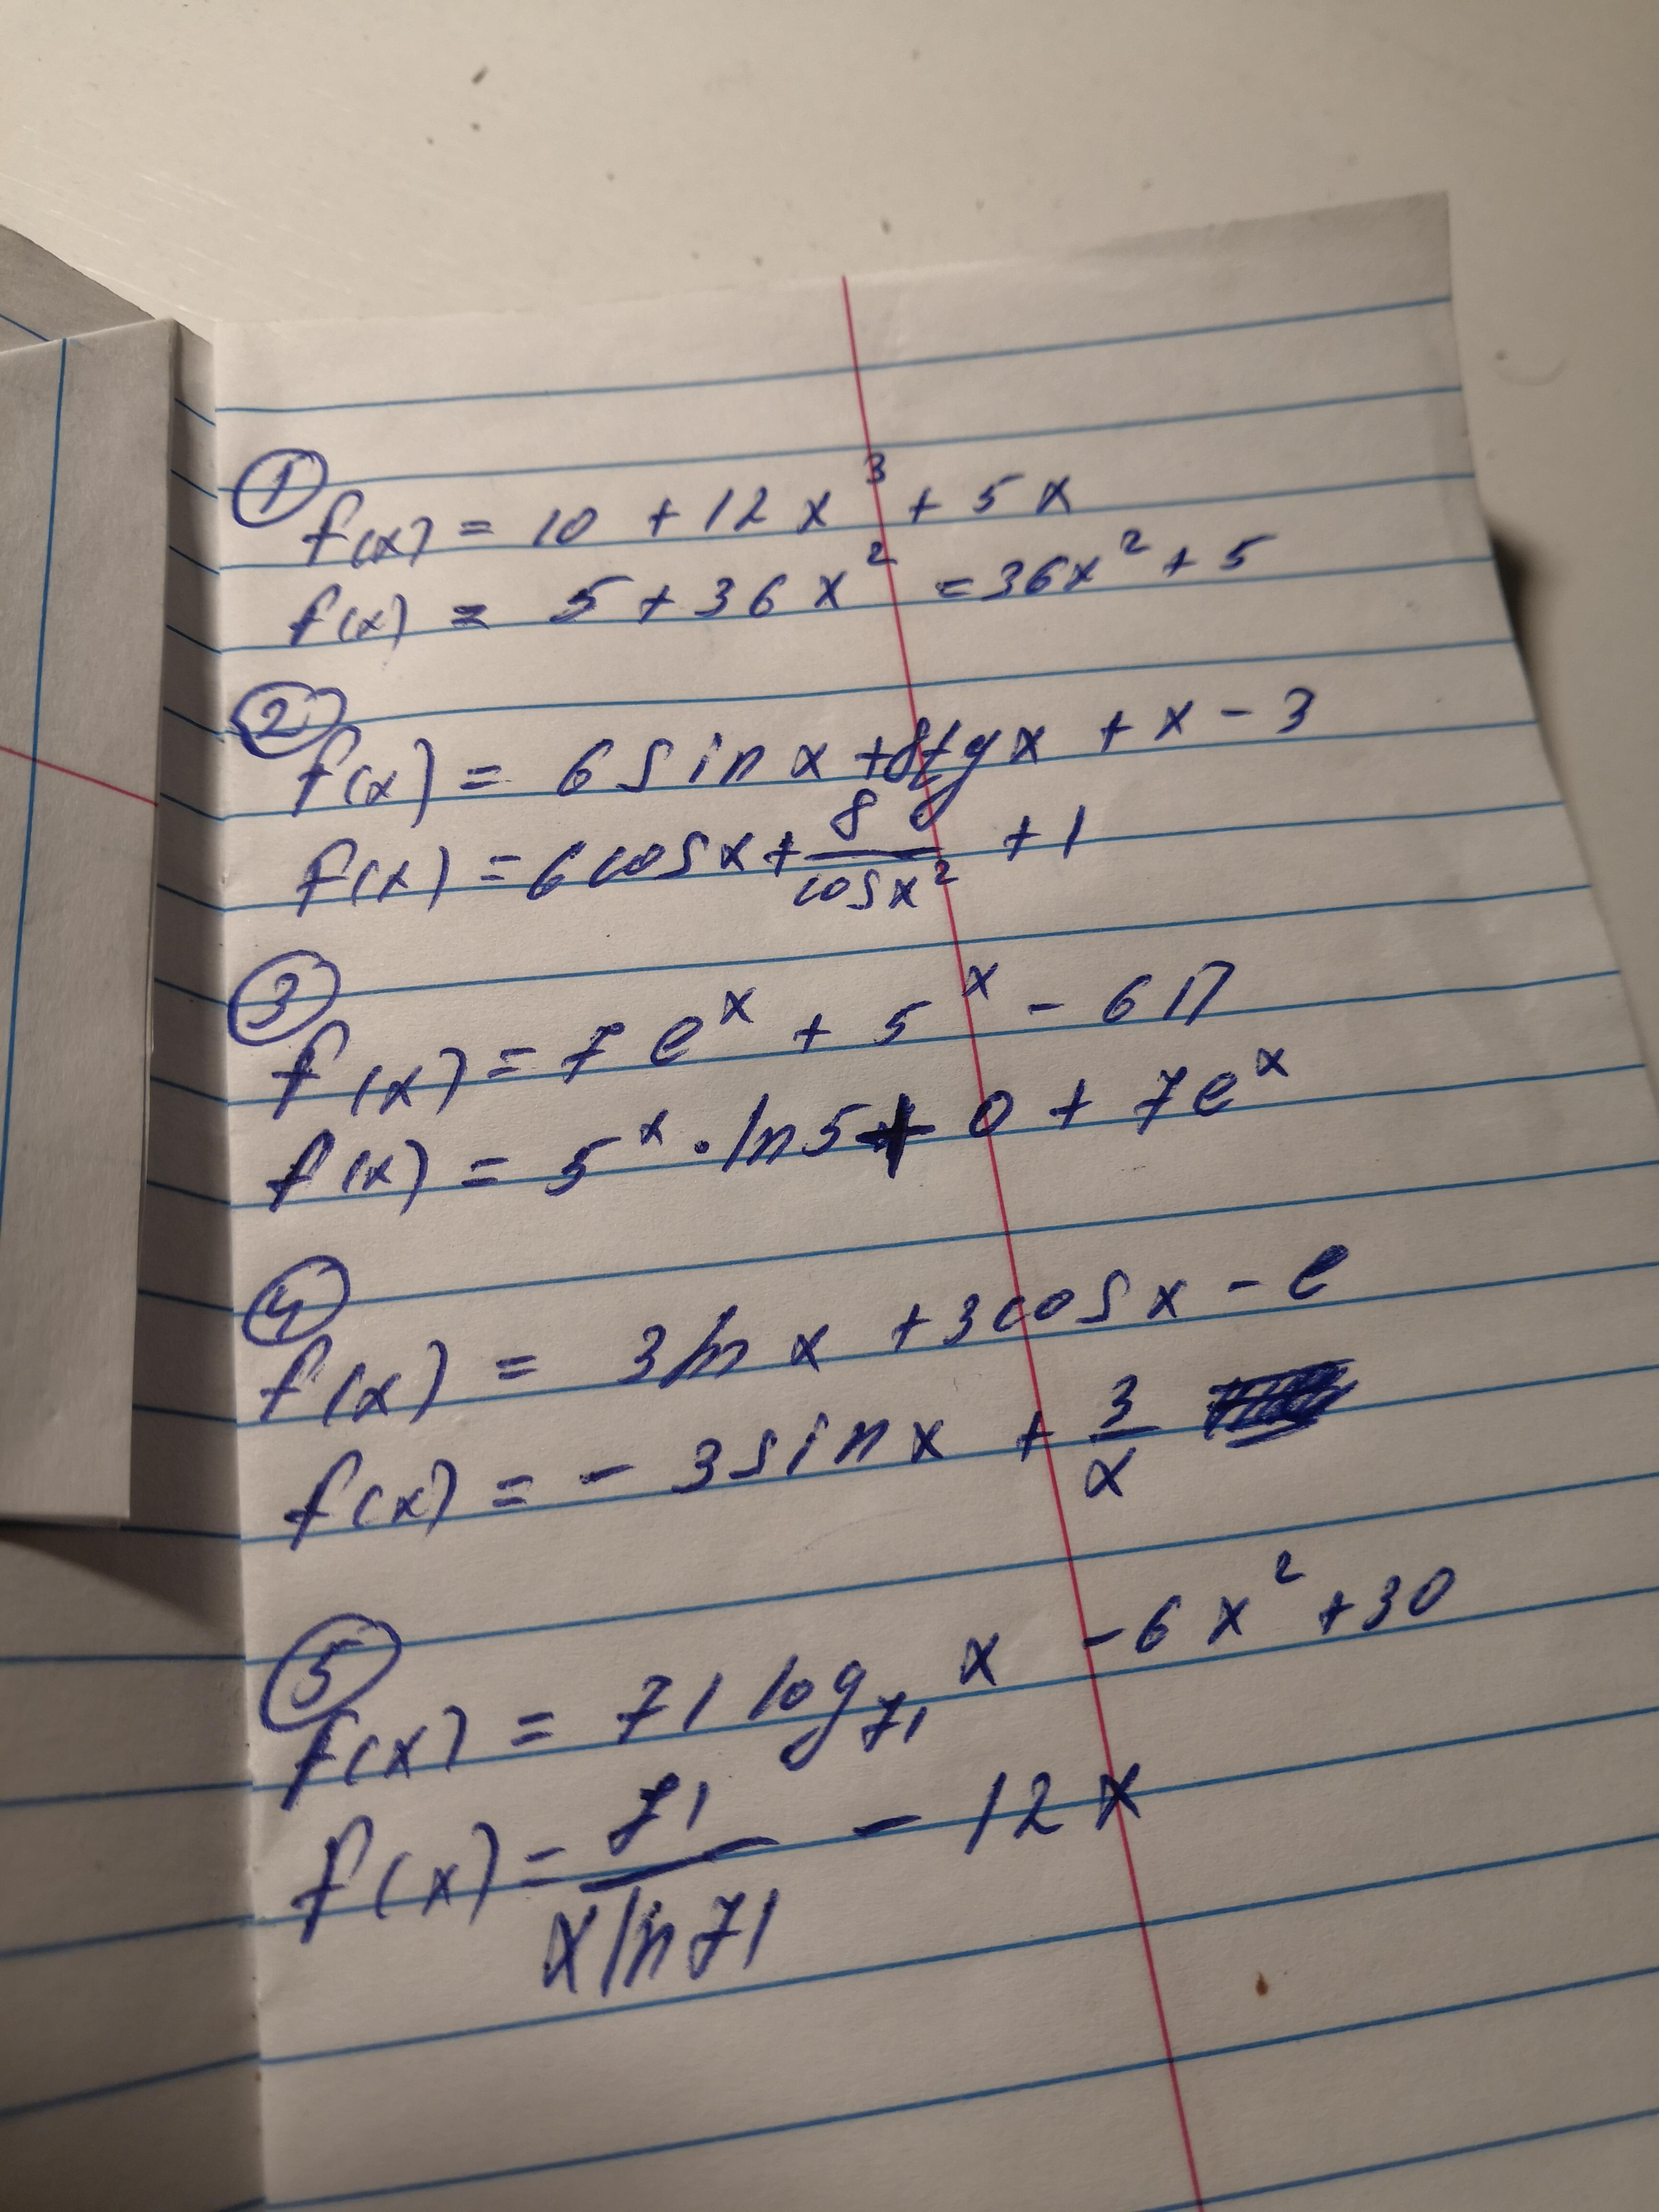 ① f(x) = 10 + 12x³ + 5x
f(x) = 5 + 36x² = 36x² + 5
② f(x) = 6 sin x + 8tg x + x - 3
f(x) = 6 cos x + 8/cos x² + 1
③ f(x) = 7e^x + 5^x - 6П
f(x) = 5^x · ln5 + 0 + 7e^x
④ f(x) = 3 ln x + 3 cos x - e
f(x) = - 3 sin x + 3/x
⑤ f(x) = 71 log₇₁ x - 6x² + 30
f(x) = 71/x ln 71 - 12x